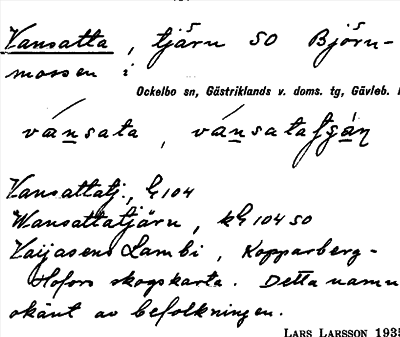 Vansatta, tjärn SO Björn-
mossen i
Ockelbo sn, Gästriklands v. doms. tg, Gävleb.
vánsata, vánsatatjä̀ṇ
Vansattatj., h 104
Wansattatjärn, kh 104 SO
Kaijasens Lambi, Kopparberg-
Hofors skogskarta. Detta namn
okänt av befolkningen.
LARS LARSSON 1935